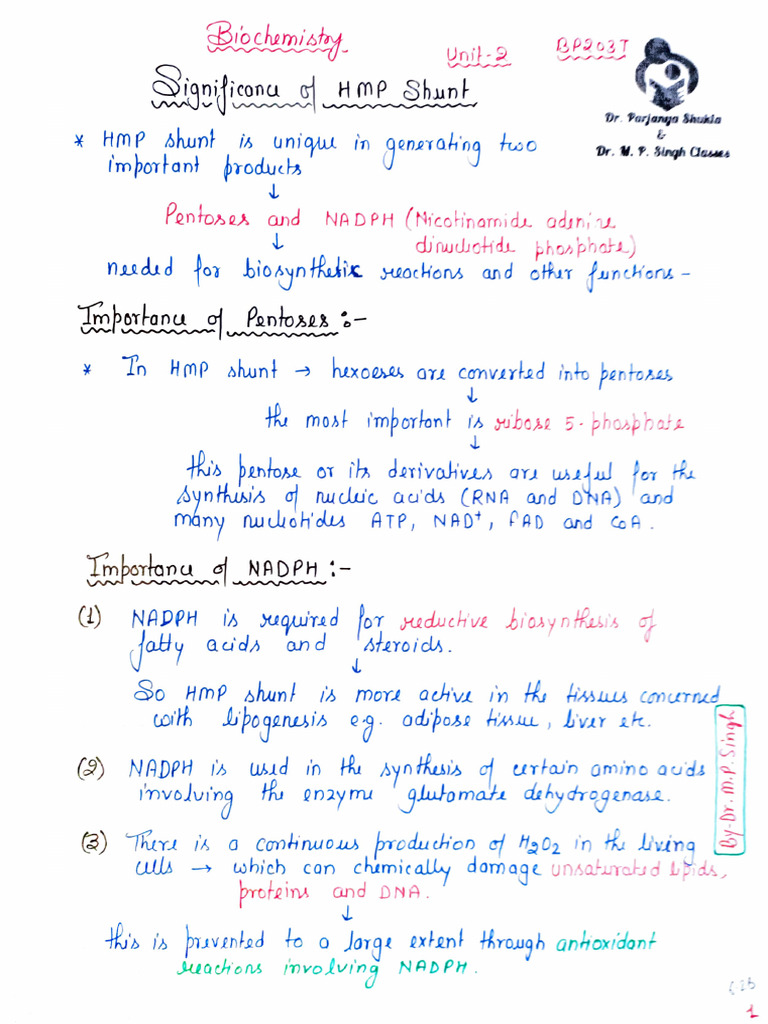 Biochemistry
Unit-2
BP203T
Significance of HMP Shunt
Dr. Parjanya Shukla
&
Dr. M. P. Singh Classes
* HMP shunt is unique in generating two
important products
↓
Pentoses and NADPH (Nicotinamide adenine
dinucleotide phosphate)
↓
needed for biosynthetic reactions and other functions -
Importance of Pentoses :-
* In HMP shunt → hexoeses are converted into pentoses
↓
the most important is ribose 5-phosphate
↓
this pentose or its derivatives are useful for the
synthesis of nucleic acids (RNA and DNA) and
many nucleotides ATP, NAD⁺, FAD and CoA.
Importance of NADPH :-
(1) NADPH is required for reductive biosynthesis of
fatty acids and steroids.
↓
So HMP shunt is more active in the tissues concerned
with lipogenesis e.g. adipose tissue, liver etc.
(2) NADPH is used in the synthesis of certain amino acids
involving the enzyme glutamate dehydrogenase.
(3) There is a continuous production of H₂O₂ in the living
cells → which can chemically damage unsaturated lipids,
proteins and DNA.
↓
this is prevented to a large extent through antioxidant
reactions involving NADPH.
By-Dr. M.P. Singh
1